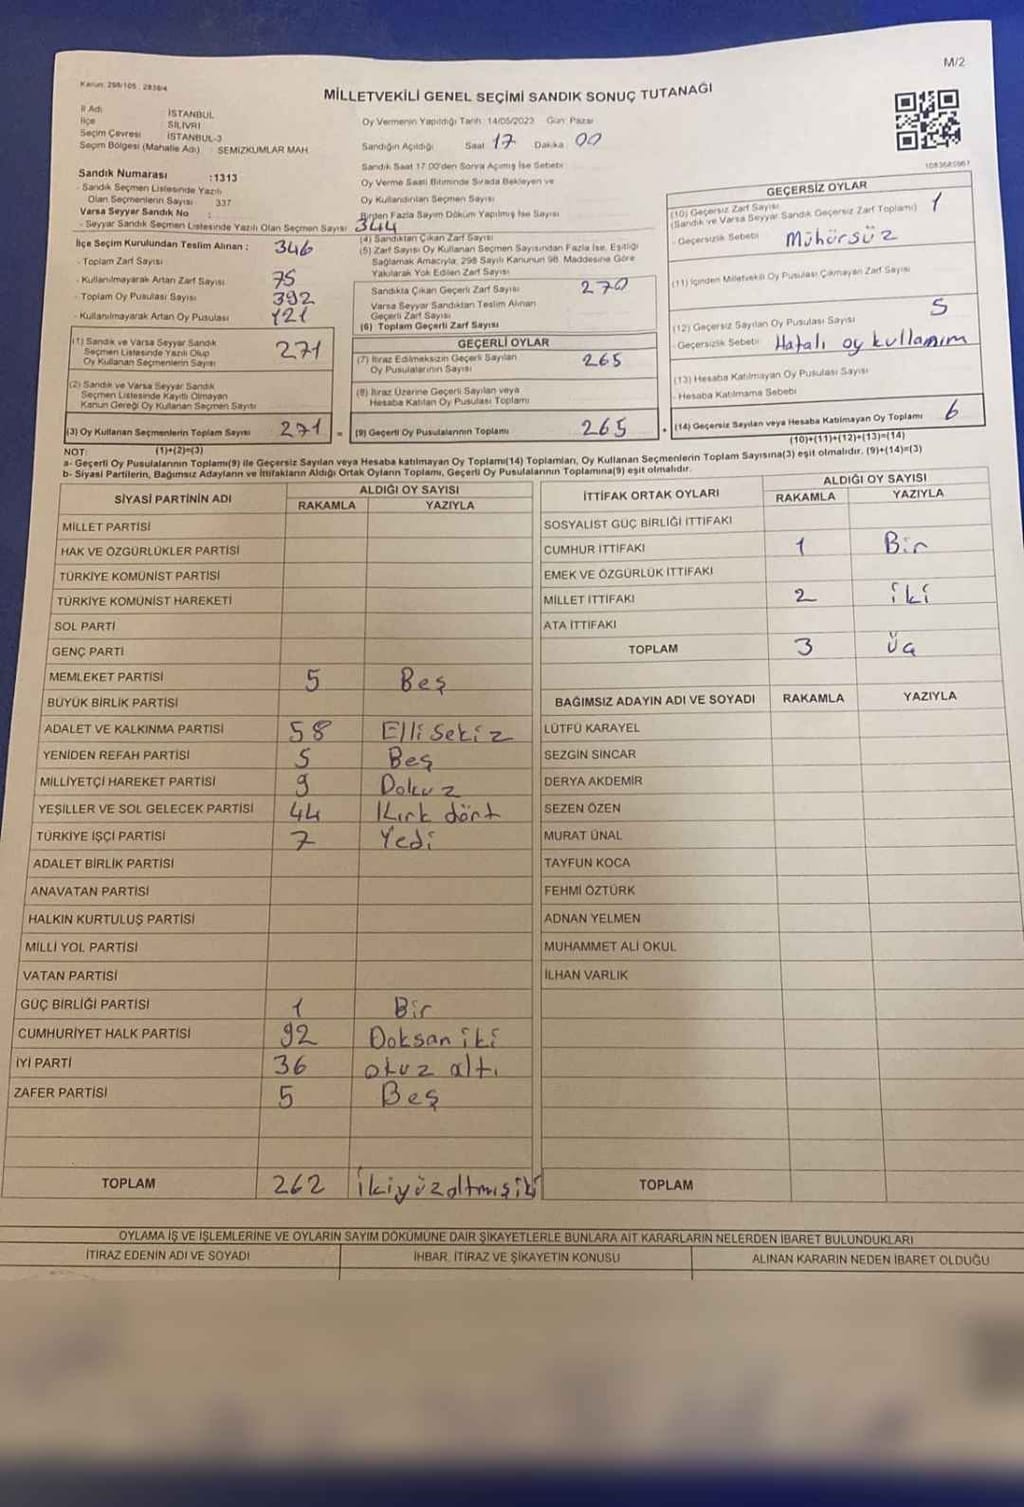 M/2
Kanun: 298/105, 2839/4
MİLLETVEKİLİ GENEL SEÇİMİ SANDIK SONUÇ TUTANAĞI
İl Adı İSTANBUL
İlçe SİLİVRİ
Seçim Çevresi İSTANBUL-3
Seçim Bölgesi (Mahalle Adı) : SEMİZKUMLAR MAH.
Sandık Numarası :1313
- Sandık Seçmen Listesinde Yazılı
Olan Seçmenlerin Sayısı 337
Varsa Seyyar Sandık No :
- Seyyar Sandık Seçmen Listesinde Yazılı Olan Seçmen Sayısı
Oy Vermenin Yapıldığı Tarih: 14/05/2023 Gün: Pazar
Sandığın Açıldığı Saat 17 Dakika 00
Sandık Saat 17:00'den Sonra Açılmış İse Sebebi
Oy Verme Saati Bitiminde Sırada Bekleyen ve
Oy Kullandırılan Seçmen Sayısı
Birden Fazla Sayım Döküm Yapılmış İse Sayısı
1083685967
İlçe Seçim Kurulundan Teslim Alınan : 344
- Toplam Zarf Sayısı 346
- Kullanılmayarak Artan Zarf Sayısı 75
- Toplam Oy Pusulası Sayısı 392
- Kullanılmayarak Artan Oy Pusulası 121
(1) Sandık ve Varsa Seyyar Sandık
Seçmen Listesinde Yazılı Olup
Oy Kullanan Seçmenlerin Sayısı 271
(2) Sandık ve Varsa Seyyar Sandık
Seçmen Listesinde Kayıtlı Olmayan
Kanun Gereği Oy Kullanan Seçmen Sayısı
(3) Oy Kullanan Seçmenlerin Toplam Sayısı 271 =
(1)+(2)=(3)
(4) Sandıktan Çıkan Zarf Sayısı
(5) Zarf Sayısı Oy Kullanan Seçmen Sayısından Fazla İse, Eşitliği
Sağlamak Amacıyla; 298 Sayılı Kanunun 98. Maddesine Göre
Yakılarak Yok Edilen Zarf Sayısı
Sandıkta Çıkan Geçerli Zarf Sayısı 270
Varsa Seyyar Sandıktan Teslim Alınan
Geçerli Zarf Sayısı
(6) Toplam Geçerli Zarf Sayısı
GEÇERLİ OYLAR
(7) İtiraz Edilmeksizin Geçerli Sayılan
Oy Pusulalarının Sayısı 265
(8) İtiraz Üzerine Geçerli Sayılan veya
Hesaba Katılan Oy Pusulası Toplamı
(9) Geçerli Oy Pusulalarının Toplamı 265 +
GEÇERSİZ OYLAR
(10) Geçersiz Zarf Sayısı 1
(Sandık ve Varsa Seyyar Sandık Geçersiz Zarf Toplamı)
- Geçersizlik Sebebi Mühürsüz
(11) İçinden Milletvekili Oy Pusulası Çıkmayan Zarf Sayısı
(12) Geçersiz Sayılan Oy Pusulası Sayısı 5
- Geçersizlik Sebebi Hatalı oy kullanım
(13) Hesaba Katılmayan Oy Pusulası Sayısı
- Hesaba Katılmama Sebebi
(14) Geçersiz Sayılan veya Hesaba Katılmayan Oy Toplamı 6
(10)+(11)+(12)+(13)=(14)
NOT:
a- Geçerli Oy Pusulalarının Toplamı(9) ile Geçersiz Sayılan veya Hesaba katılmayan Oy Toplamı(14) Toplamları, Oy Kullanan Seçmenlerin Toplam Sayısına(3) eşit olmalıdır. (9)+(14)=(3)
b- Siyasi Partilerin, Bağımsız Adayların ve İttifakların Aldığı Ortak Oyların Toplamı, Geçerli Oy Pusulalarının Toplamına(9) eşit olmalıdır.
SİYASİ PARTİNİN ADI ALDIĞI OY SAYISI
RAKAMLA YAZIYLA
MİLLET PARTİSİ
HAK VE ÖZGÜRLÜKLER PARTİSİ
TÜRKİYE KOMÜNİST PARTİSİ
TÜRKİYE KOMÜNİST HAREKETİ
SOL PARTİ
GENÇ PARTİ
MEMLEKET PARTİSİ 5 Beş
BÜYÜK BİRLİK PARTİSİ
ADALET VE KALKINMA PARTİSİ 58 Elli sekiz
YENİDEN REFAH PARTİSİ 5 Beş
MİLLİYETÇİ HAREKET PARTİSİ 9 Dokuz
YEŞİLLER VE SOL GELECEK PARTİSİ 44 Kırk dört
TÜRKİYE İŞÇİ PARTİSİ 7 Yedi
ADALET BİRLİK PARTİSİ
ANAVATAN PARTİSİ
HALKIN KURTULUŞ PARTİSİ
MİLLİ YOL PARTİSİ
VATAN PARTİSİ
GÜÇ BİRLİĞİ PARTİSİ 1 Bir
CUMHURİYET HALK PARTİSİ 92 Doksan iki
İYİ PARTİ 36 otuz altı
ZAFER PARTİSİ 5 Beş
TOPLAM 262 İkiyüzaltmışiki
İTTİFAK ORTAK OYLARI ALDIĞI OY SAYISI
RAKAMLA YAZIYLA
SOSYALİST GÜÇ BİRLİĞİ İTTİFAKI
CUMHUR İTTİFAKI 1 Bir
EMEK VE ÖZGÜRLÜK İTTİFAKI
MİLLET İTTİFAKI 2 iki
ATA İTTİFAKI
TOPLAM 3 üç
BAĞIMSIZ ADAYIN ADI VE SOYADI RAKAMLA YAZIYLA
LÜTFÜ KARAYEL
SEZGİN SİNCAR
DERYA AKDEMİR
SEZEN ÖZEN
MURAT ÜNAL
TAYFUN KOCA
FEHMİ ÖZTÜRK
ADNAN YELMEN
MUHAMMET ALİ OKUL
İLHAN VARLIK
TOPLAM
OYLAMA İŞ VE İŞLEMLERİNE VE OYLARIN SAYIM DÖKÜMÜNE DAİR ŞİKAYETLERLE BUNLARA AİT KARARLARIN NELERDEN İBARET BULUNDUKLARI
İTİRAZ EDENİN ADI VE SOYADI İHBAR, İTİRAZ VE ŞİKAYETİN KONUSU ALINAN KARARIN NEDEN İBARET OLDUĞU